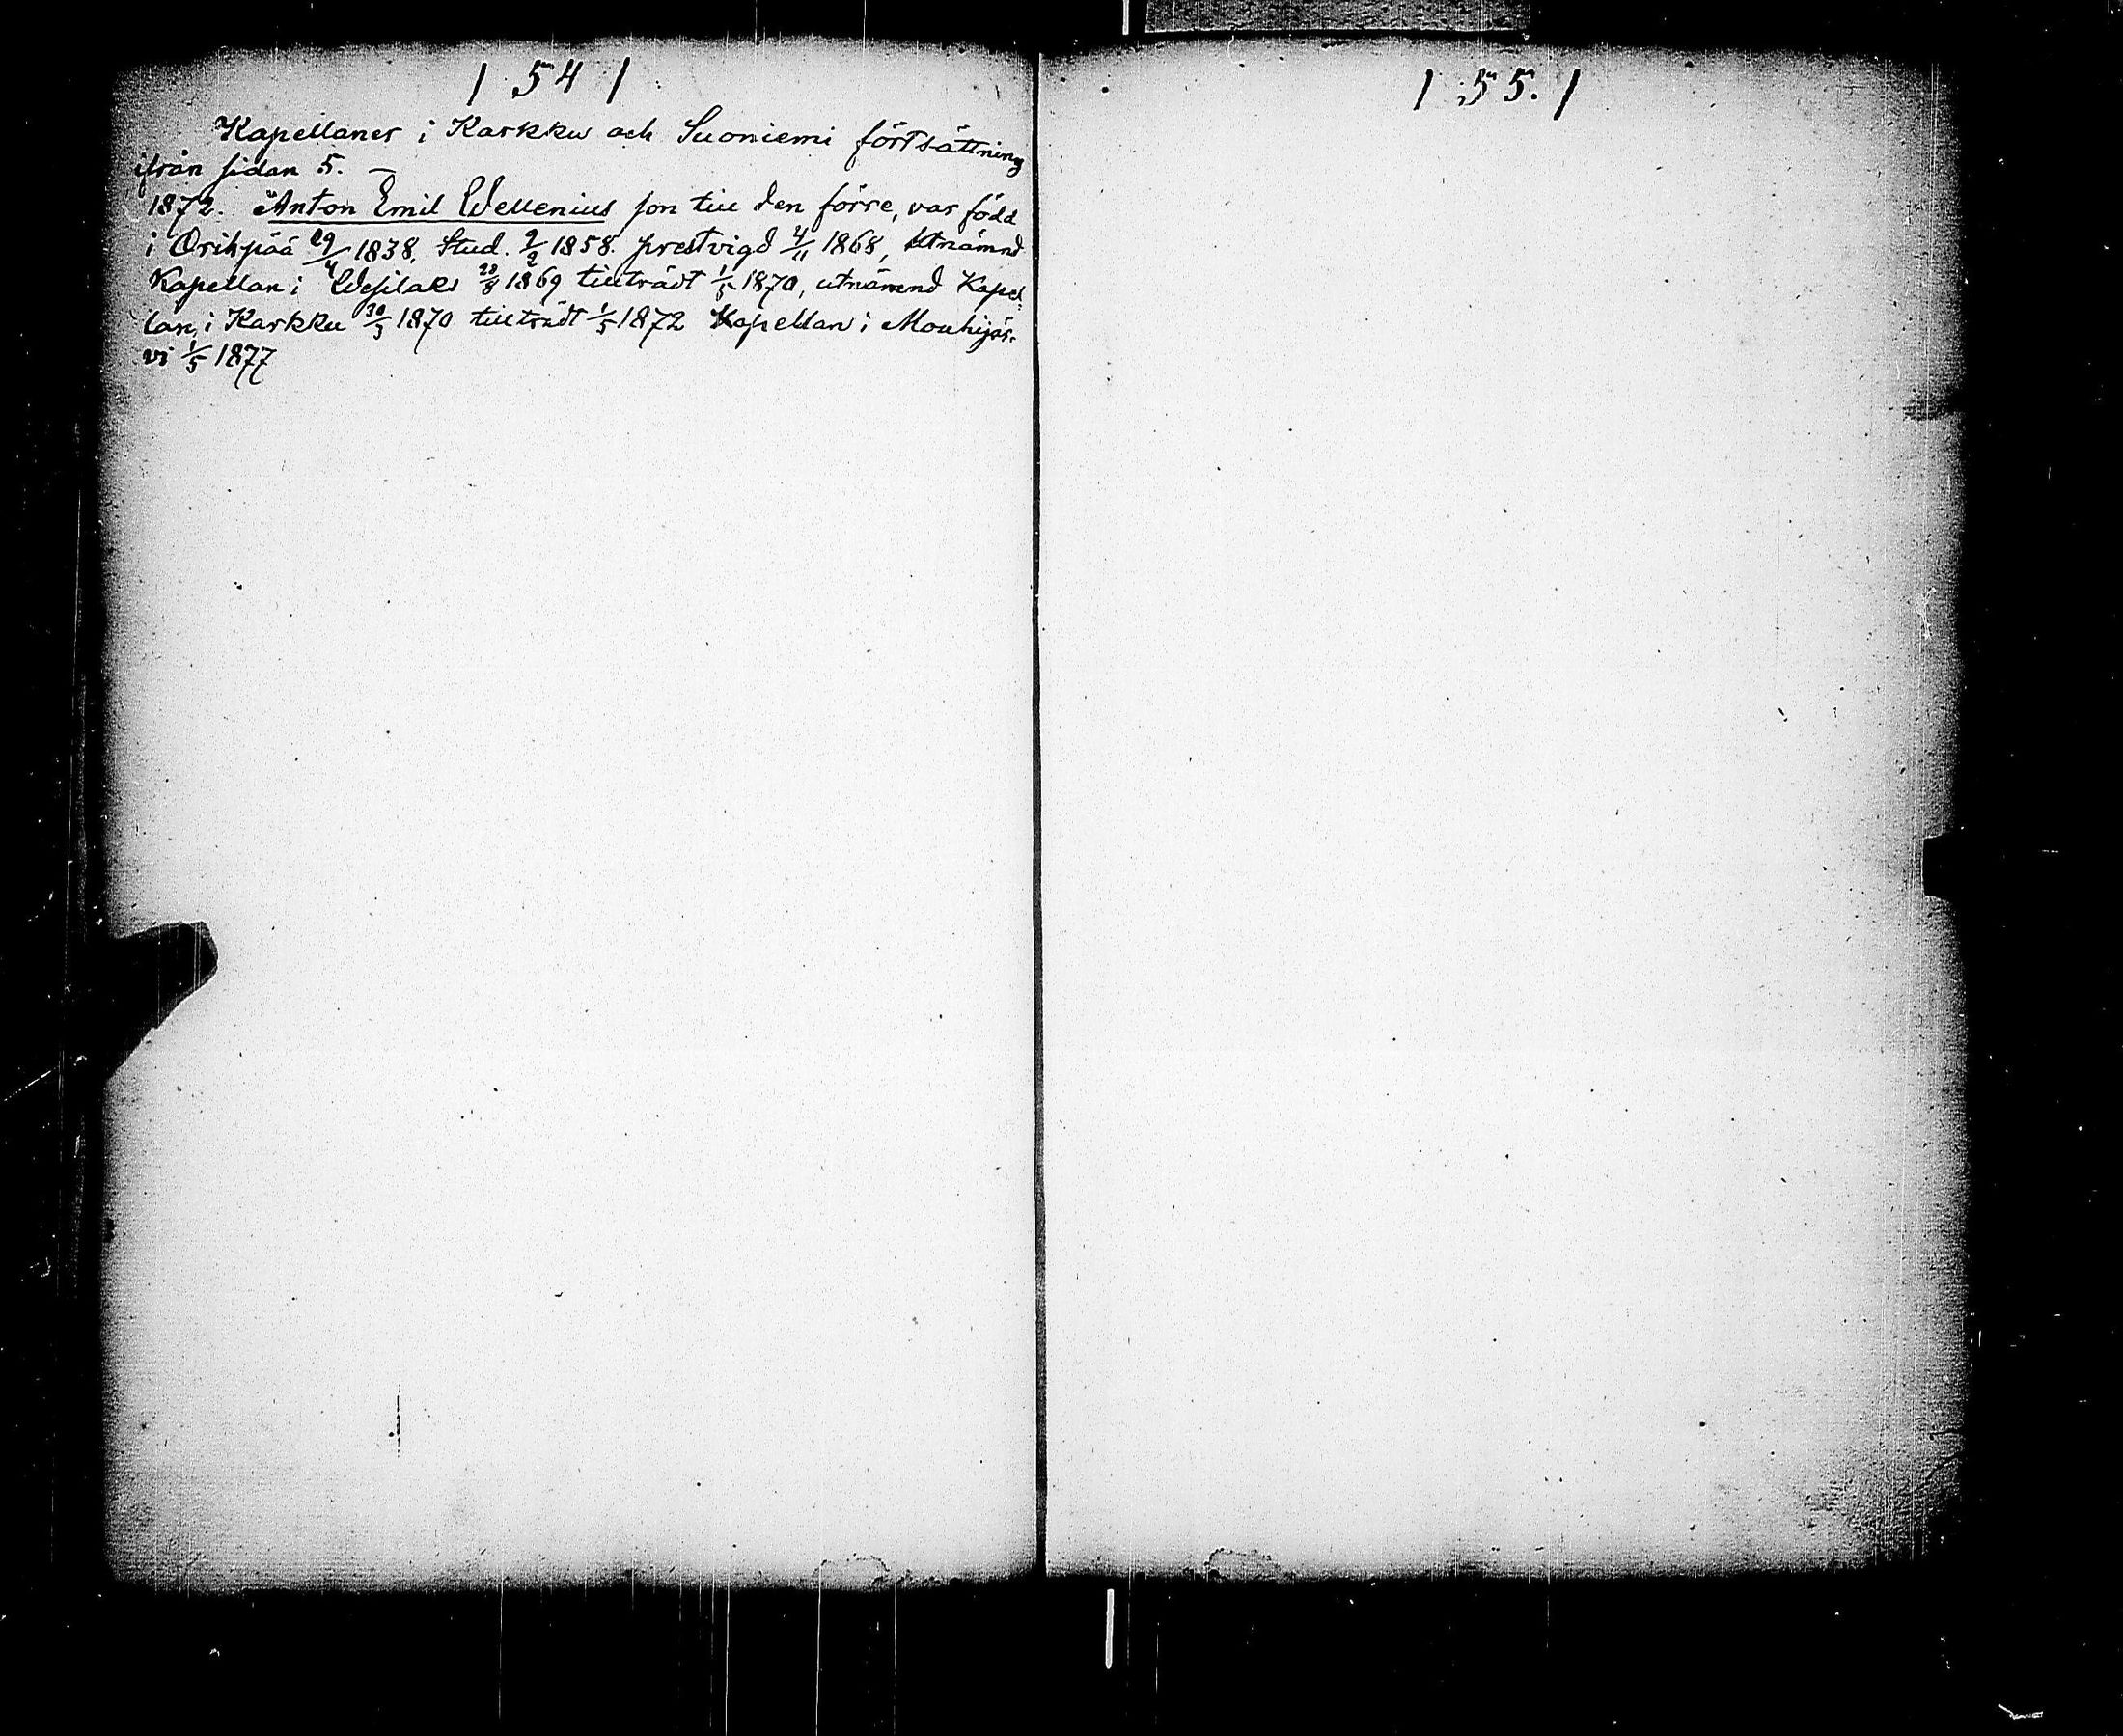 / 54 /
Kapellaner i Karkku och Suoniemi förtsättning
ifrån sidan 5. —
1872. Anton Emil Wellenius son till den förre, var född
i Orihpää 29/4 1838. Stud. 9/2 1858. prestvigd 4/11 1868, Utnämnd
Kapellan i Wesilaks 28/8 1869 tillträdt 1/5 1870, utnämnd Kapel=
lan i Karkku 30/3 1870 tillträdt 1/5 1872 Kapellan i Mouhijär-
vi 1/5 1877
/ 55. /